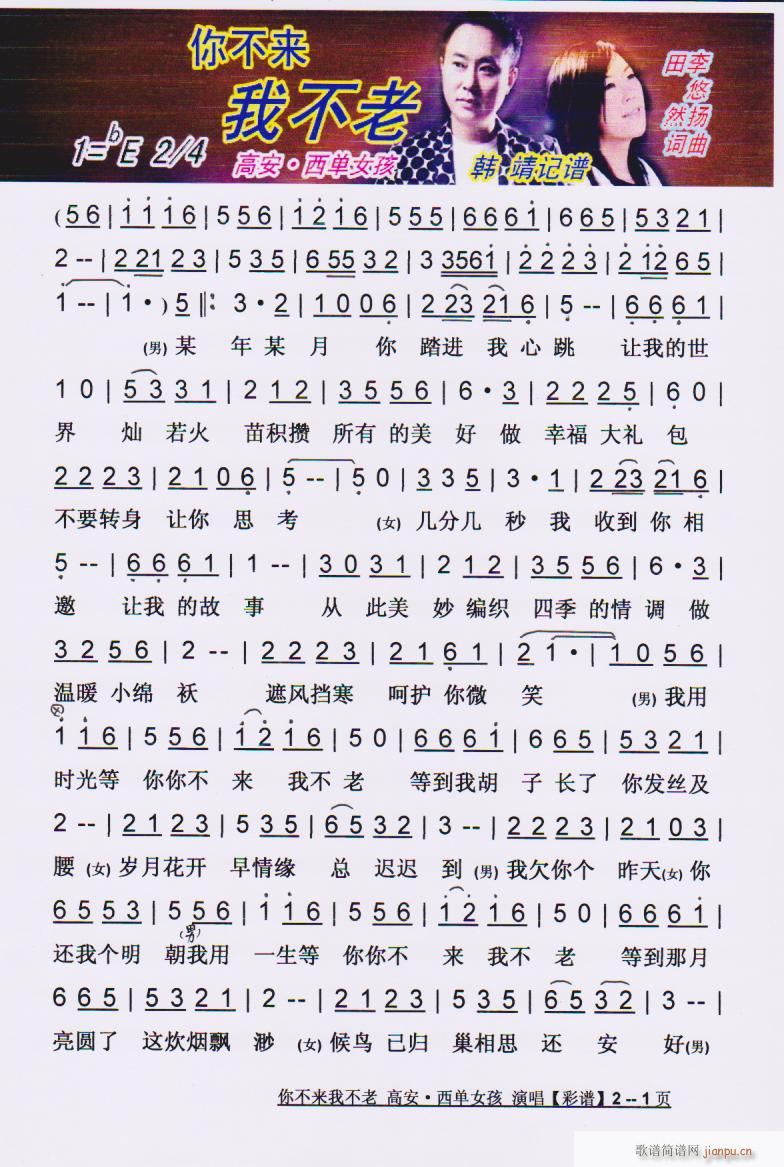 你不来
我不老
1=bE 2/4
高安·西单女孩
韩 靖记谱
李悠扬曲
田然词
(5 6 | 1 1 1 6 | 5 5 6 | 1 2 1 6 | 5 5 5 | 6 6 6 1 | 6 6 5 | 5 3 2 1 |
2 -- | 2 2 1 2 3 | 5 3 5 | 6 5 5 3 2 | 3 3 5 6 1 | 2 2 2 3 | 2 1 2 6 5 |
1 -- | 1 · ) 5 |: 3 · 2 | 1 0 0 6 | 2 2 3 2 1 6 | 5 -- | 6 6 6 1 |
(男) 某 年 某 月 你 踏进 我 心 跳 让我的世
1 0 | 5 3 3 1 | 2 1 2 | 3 5 5 6 | 6 · 3 | 2 2 2 5 | 6 0 |
界 灿 若火 苗积攒 所有 的美 好 做 幸福 大礼 包
2 2 2 3 | 2 1 0 6 | 5 -- | 5 0 | 3 3 5 | 3 · 1 | 2 2 3 2 1 6 |
不要转身 让你 思 考 (女) 几分几 秒 我 收到 你 相
5 -- | 6 6 6 1 | 1 -- | 3 0 3 1 | 2 1 2 | 3 5 5 6 | 6 · 3 |
邀 让我 的故 事 从 此美 妙 编织 四季 的情 调 做
3 2 5 6 | 2 -- | 2 2 2 3 | 2 1 6 1 | 2 1 · | 1 0 5 6 |
温暖 小绵 袄 遮风挡寒 呵护 你微 笑 (男) 我用
1 1 6 | 5 5 6 | 1 2 1 6 | 5 0 | 6 6 6 1 | 6 6 5 | 5 3 2 1 |
时光等 你你不 来 我不 老 等到我胡 子 长了 你发丝及
2 -- | 2 1 2 3 | 5 3 5 | 6 5 3 2 | 3 -- | 2 2 2 3 | 2 1 0 3 |
腰 (女) 岁月花开 早情缘 总 迟迟 到 (男) 我欠你个 昨天(女) 你
6 5 5 3 | 5 5 6 | 1 1 6 | 5 5 6 | 1 2 1 6 | 5 0 | 6 6 6 1 |
(男)
还我个明 朝我用 一生等 你你不 来 我不 老 等到那月
6 6 5 | 5 3 2 1 | 2 -- | 2 1 2 3 | 5 3 5 | 6 5 3 2 | 3 -- |
亮圆了 这炊烟飘 渺 (女) 候鸟 已归 巢相思 还 安 好(男)
你不来我不老 高安·西单女孩 演唱【彩谱】2 -- 1 页
歌谱简谱网
jianpu.cn